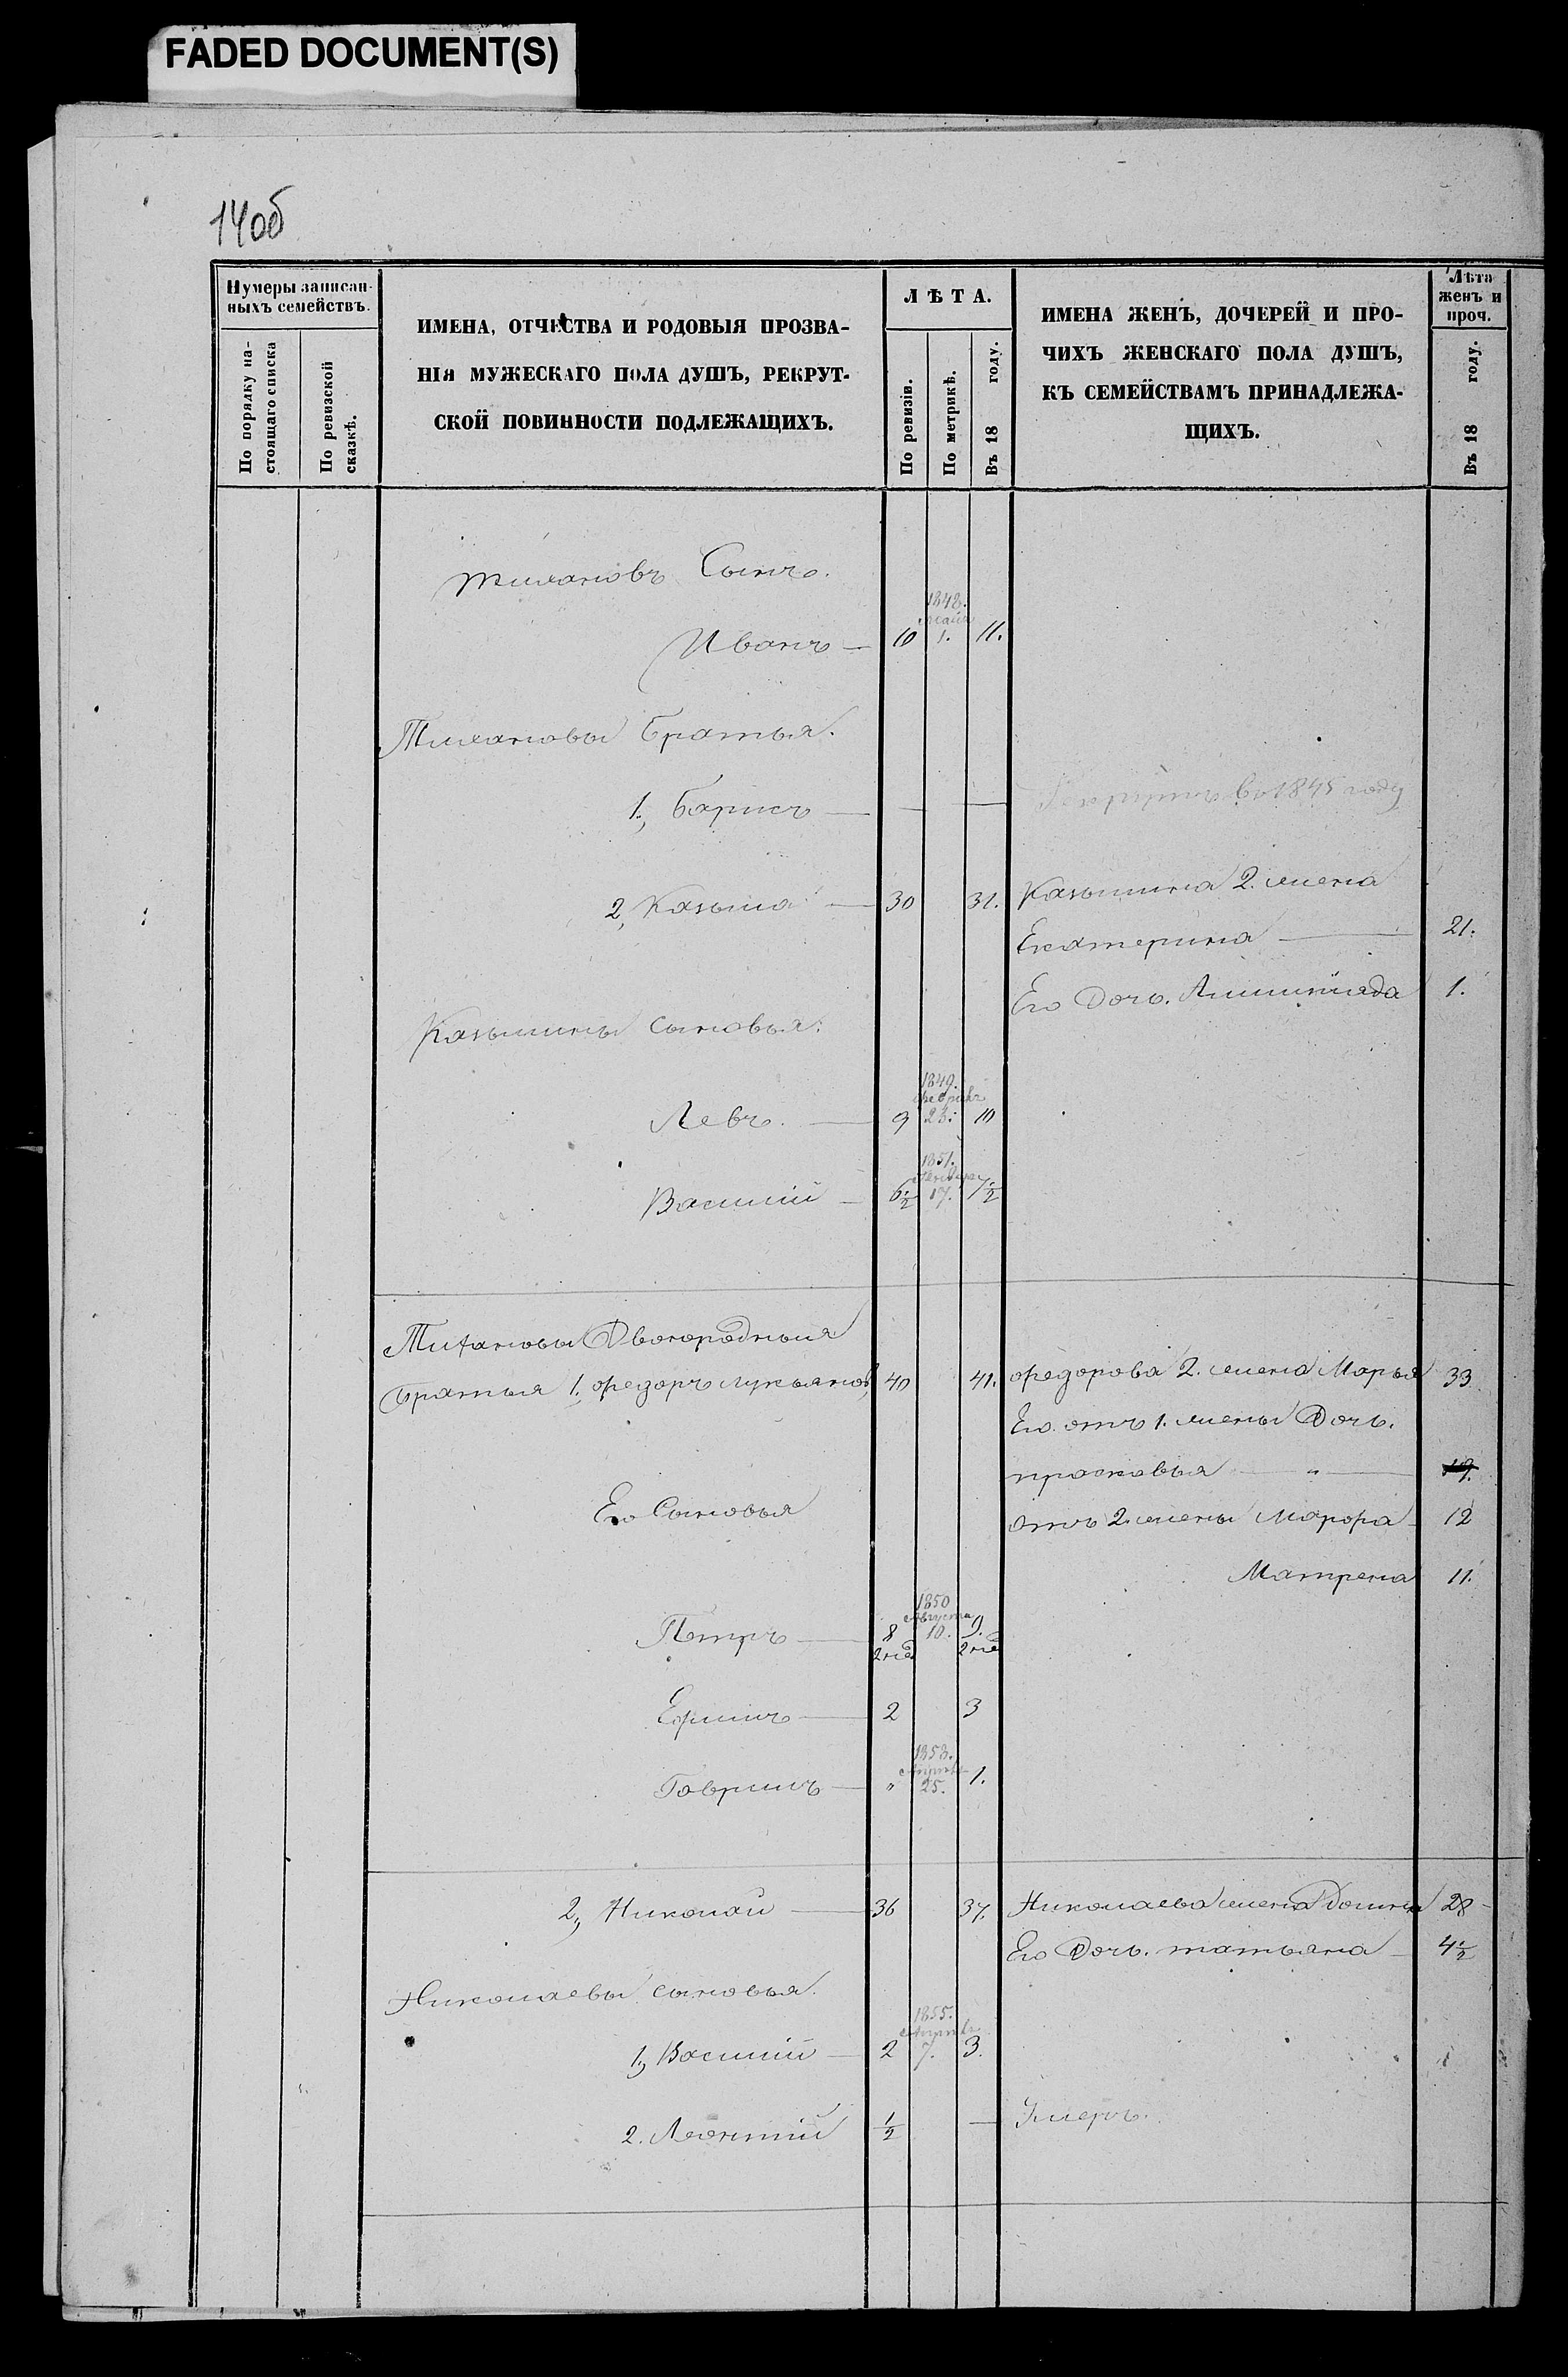 FADED DOCUMENT(S)
14об
Нумеры записан-
ныхъ семействъ.
По порядку на-
стоящаго списка
По ревизской
сказкѣ.
ИМЕНА, ОТЧЕСТВА И РОДОВЫЯ ПРОЗВА-
НІЯ МУЖЕСКАГО ПОЛА ДУШЪ, РЕКРУТ-
СКОЙ ПОВИННОСТИ ПОДЛЕЖАЩИХЪ.
ЛѢТА.
По ревизіи.
По метрикѣ.
Въ 18 году.
ИМЕНА ЖЕНЪ, ДОЧЕРЕЙ И ПРО-
ЧИХЪ ЖЕНСКАГО ПОЛА ДУШЪ,
КЪ СЕМЕЙСТВАМЪ ПРИНАДЛЕЖА-
ЩИХЪ.
Лѣта
женъ и
проч.
Въ 18 году.
Сынъ.
1848.
Иванъ — 10 1. 11.
братья.
1., Барисъ — — — в 1845 году
2, Казьма — 30 31. Казьмина 2. жена
Екатерина — 21.
Его дочь. 1.
Казьмины сыновья:
1849.
Левъ. — 9 23. 10
1851.
Василій — 6½ 17. 7½
Двоюродныя
братья 1., Федоръ Лукьяновъ 40 41. Федорова 2. жена Марья 33
Его отъ 1. жены дочь.
Прасковья — „ — 19.
Его сыновья
отъ 2. жены Марфа — 12
Матрена 11.
1850
Августа
Петръ — 8 10. 9.
2 нед 2 нед
Ефимъ — 2 3
1853.
Гаврилъ — „ 25. 1.
2., Николай — 36 37. Николаева жена Домна 28
Его дочь. Татьяна — 4½
Николаевы сыновья.
1855.
1., Василій — 2 7. 3.
2. Леонтій ½ — Умеръ.